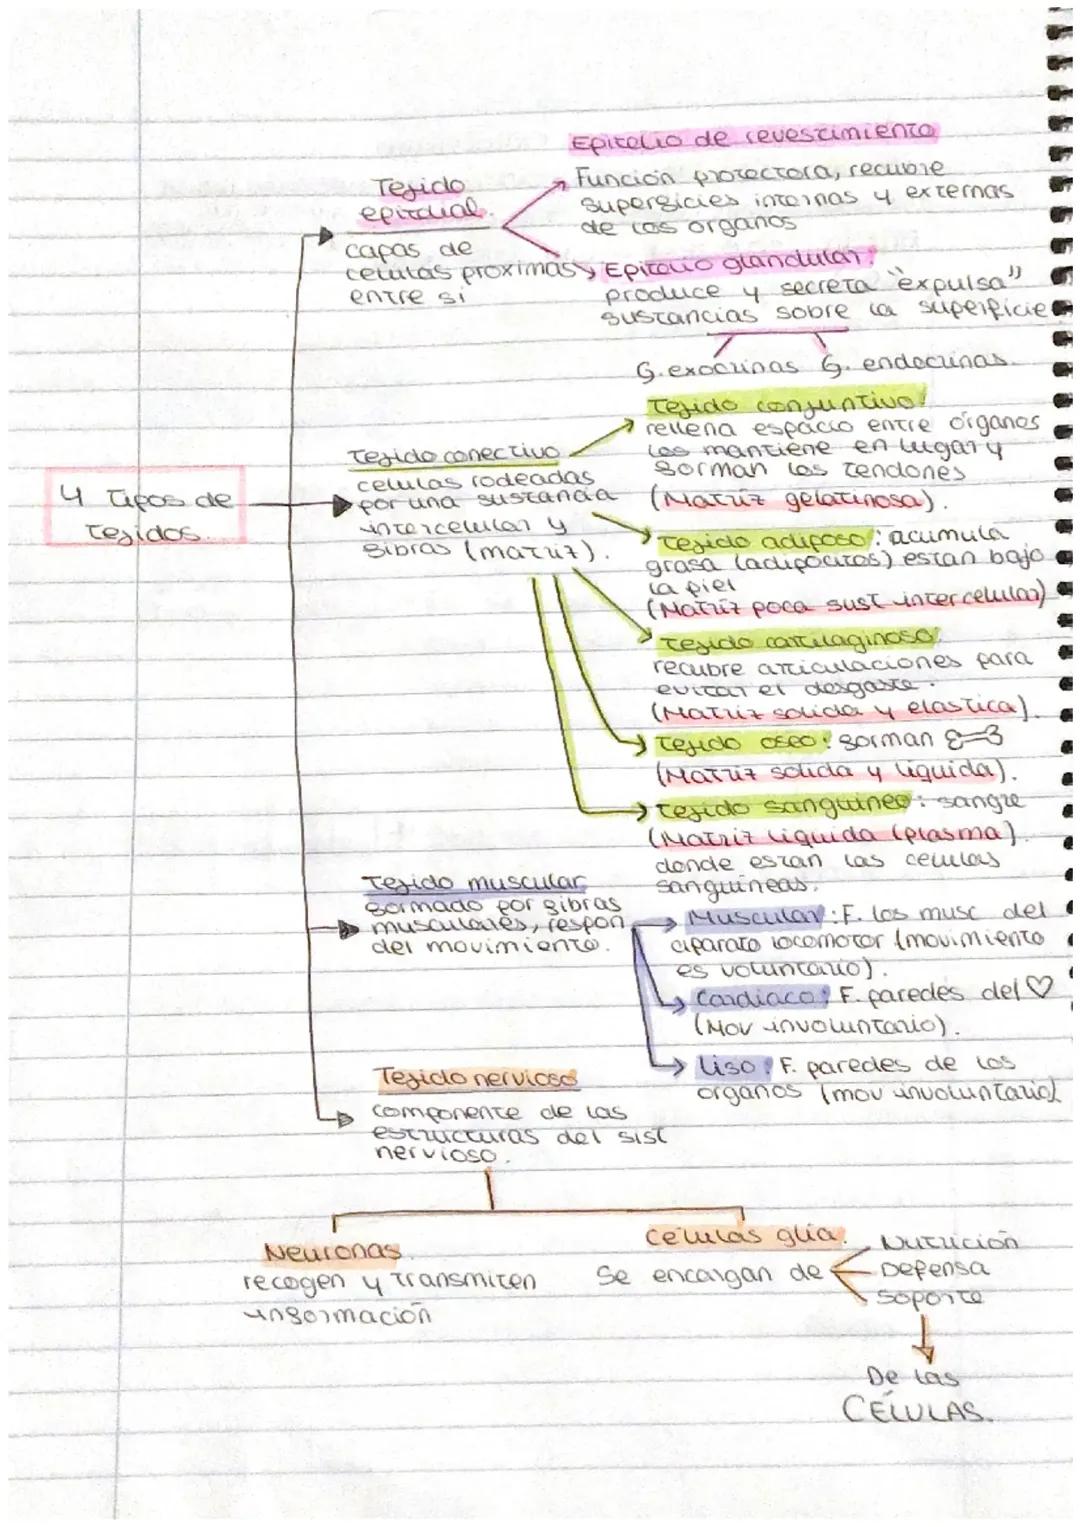 4 Tipos de
Tejidos.
Tejido
epitelial.
capas de
celulas proximas
entre si
Epitelio de revestimiento
Función protectora, recubre
superficies internas y externas
de los organos
Epitelio glandular:
produce y secreta "expulsa"
sustancias sobre la superficie
G. exocrinas G. endocrinas.
Tejido conectivo
celulas rodeadas
por una sustancia
intercelular y
fibras (matriz).
Tejido conjuntivo:
rellena espacio entre órganos
los mantiene en lugar y
forman los tendones
(Matriz gelatinosa).
Tejido adiposo: acumula
grasa (adipocitos) estan bajo
la piel
(Matriz poca sust intercelular)
Tejido cartilaginoso:
recubre articulaciones para
evitar el desgaste.
(Matriz solida y elastica).
Tejido oseo: forman
(Matriz solida y liquida).
Tejido sanguineo: sangre
(Matriz liquida (plasma)
donde estan las celulas
sanguineas.
Tejido muscular
formado por fibras
musculares, respon
del movimiento.
Muscular: F. los musc del
aparato locomotor (movimiento
es voluntario).
Cardiaco: F. paredes del ♡
(Mov involuntario).
Liso: F. paredes de los
organos (mov involuntario)
Tejido nervioso
componente de las
estructuras del sist
nervioso.
Neuronas.
recogen y transmiten
información
celulas glia.
Se encargan de
Nutrición
Defensa
Soporte
De las
CÉLULAS.